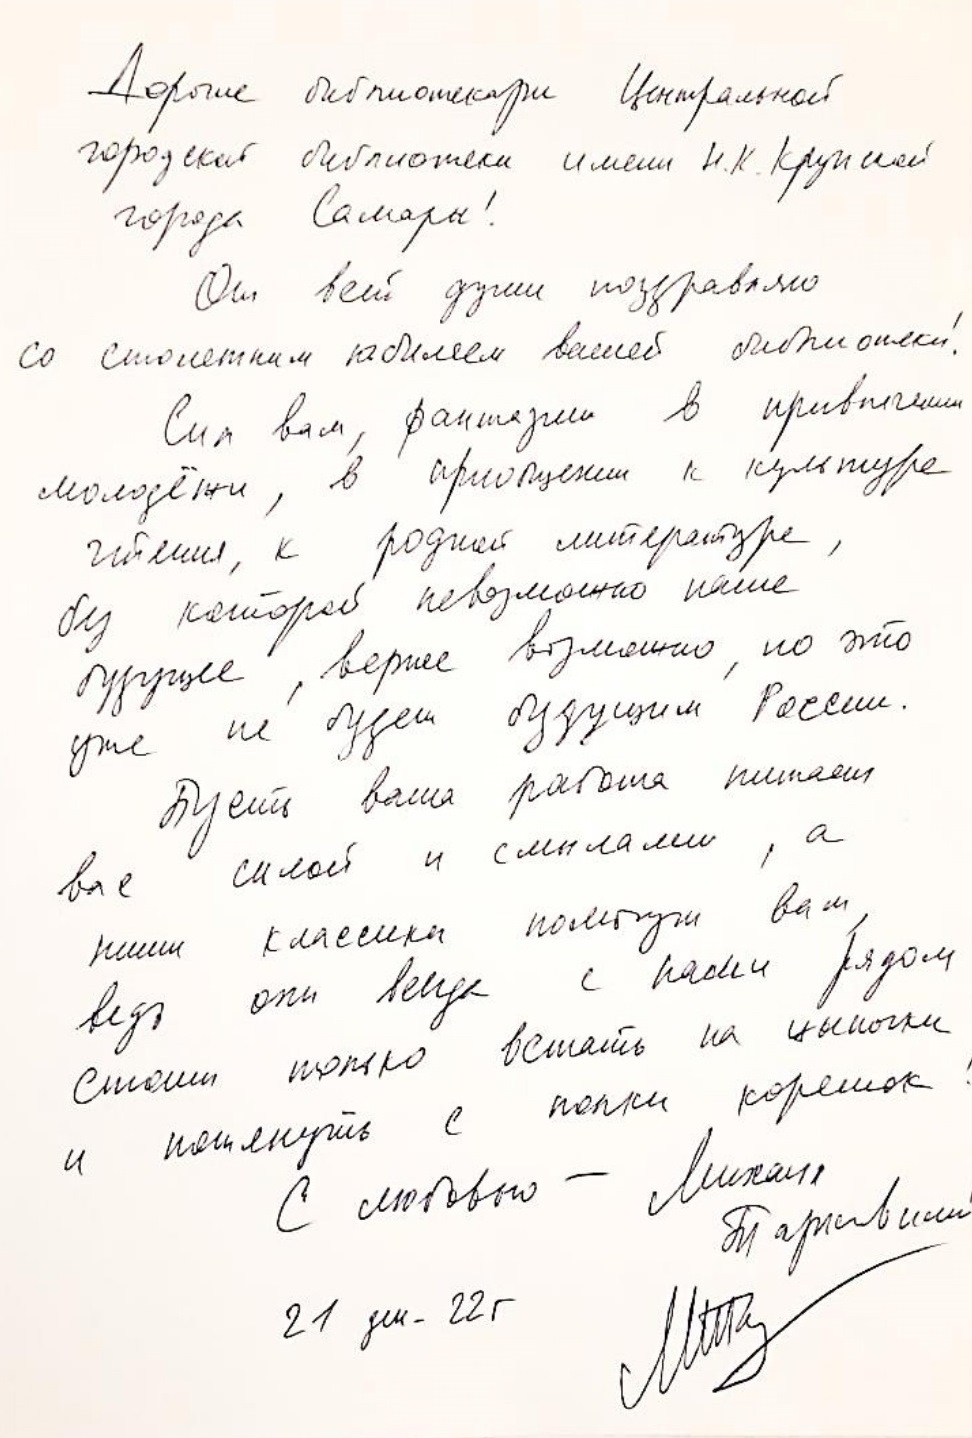 Дорогие библиотекари Центральной
городской библиотеки имени Н.К. Крупской
города Самары!
От всей души поздравляю
со столетним юбилеем вашей библиотеки!
Сил вам, фантазии в привлечении
молодёжи, в приобщении к культуре
чтения, к родной литературе,
без которой невозможно наше
будущее, вернее возможно, но это
уже не будет будущим России.
Пусть ваша работа питает
вас силой и смыслами, а
наши классики помогут вам,
ведь они всегда с нами рядом
стоит только встать на цыпочки
и потянуть с полки корешок!
С любовью — Михаил
Тарковский
21 дек. 22 г